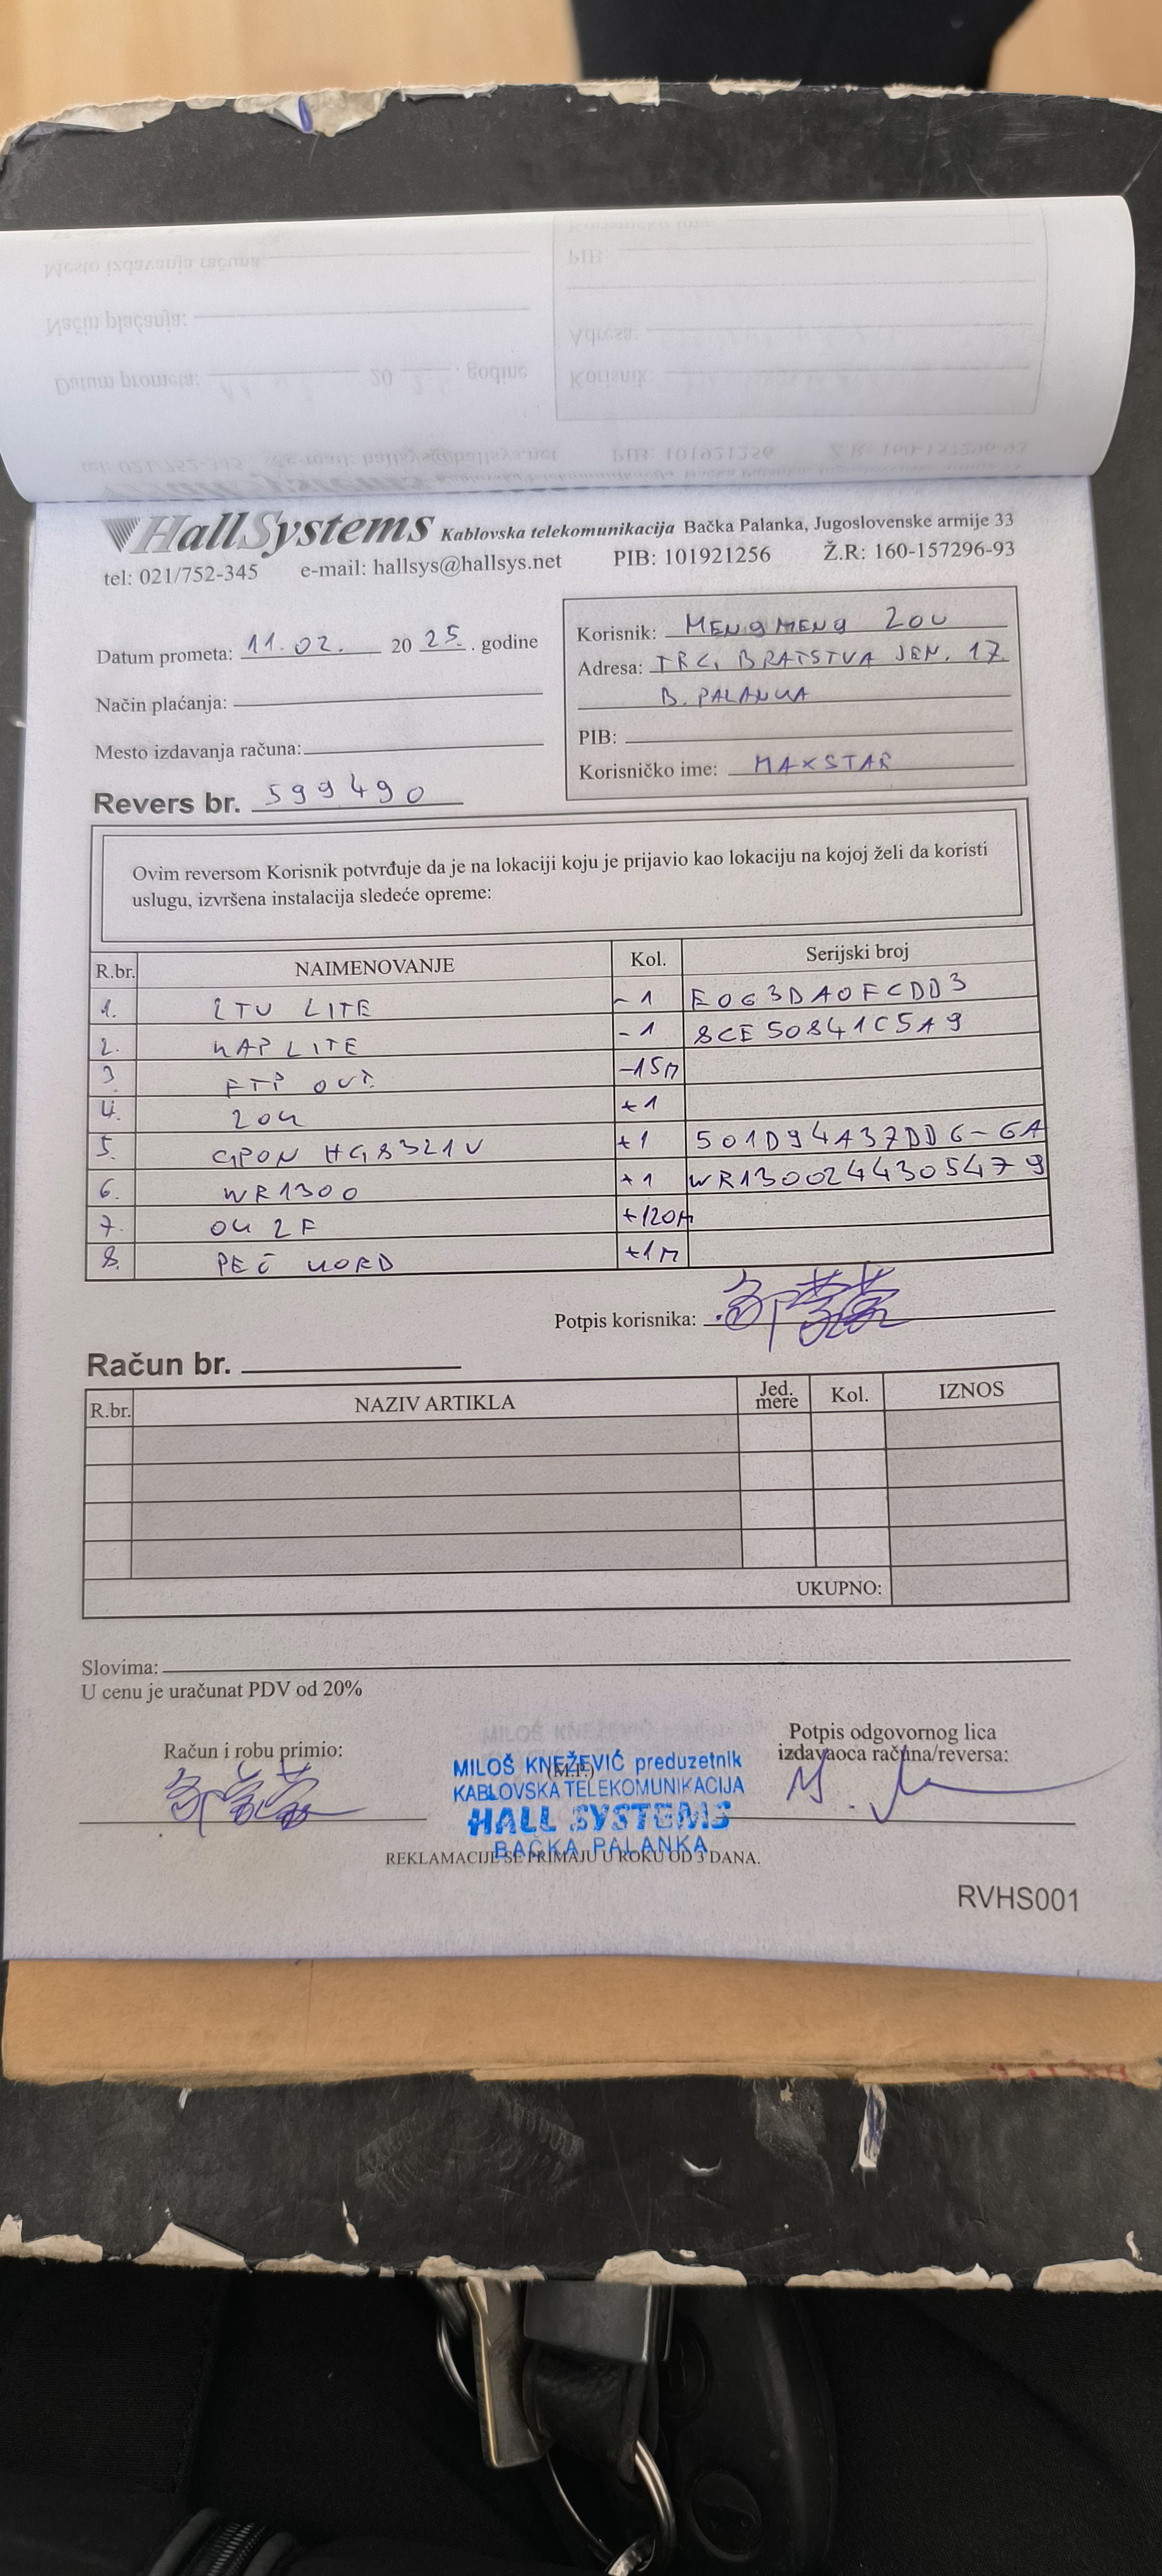 HallSystems Kablovska telekomunikacija Bačka Palanka, Jugoslovenske armije 33
tel: 021/752-345 e-mail: hallsys@hallsys.net PIB: 101921256 Ž.R: 160-157296-93
Datum prometa: 11.02. 2025. godine
Način plaćanja:
Mesto izdavanja računa:
Revers br. 599490
Korisnik: MENGMENG ZOU
Adresa: TRG BRATSTVA JEN. 17
B. PALANKA
PIB:
Korisničko ime: MAXSTAR
Ovim reversom Korisnik potvrđuje da je na lokaciji koju je prijavio kao lokaciju na kojoj želi da koristi
uslugu, izvršena instalacija sledeće opreme:
R.br. NAIMENOVANJE Kol. Serijski broj
1. LTU LITE -1 E063DA0FCDD3
2. HAP LITE -1 8CE50841C5A9
3 FTP OUT. -15M
4. ZOK +1
5. GPON HG8321V +1 501D94A37DD6-6A
6. WR1300 +1 WR1300244305479
7. OK 2F +120M
8. PEČ KORD +1M
Potpis korisnika: 邹萌萌
Račun br.
R.br. NAZIV ARTIKLA Jed. mere Kol. IZNOS
UKUPNO:
Slovima:
U cenu je uračunat PDV od 20%
Račun i robu primio:
邹萌萌
(M.P.)
MILOŠ KNEŽEVIĆ preduzetnik
KABLOVSKA TELEKOMUNIKACIJA
HALL SYSTEMS
BAČKA PALANKA
Potpis odgovornog lica
izdavaoca računa/reversa:
REKLAMACIJE SE PRIMAJU U ROKU OD 3 DANA.
RVHS001